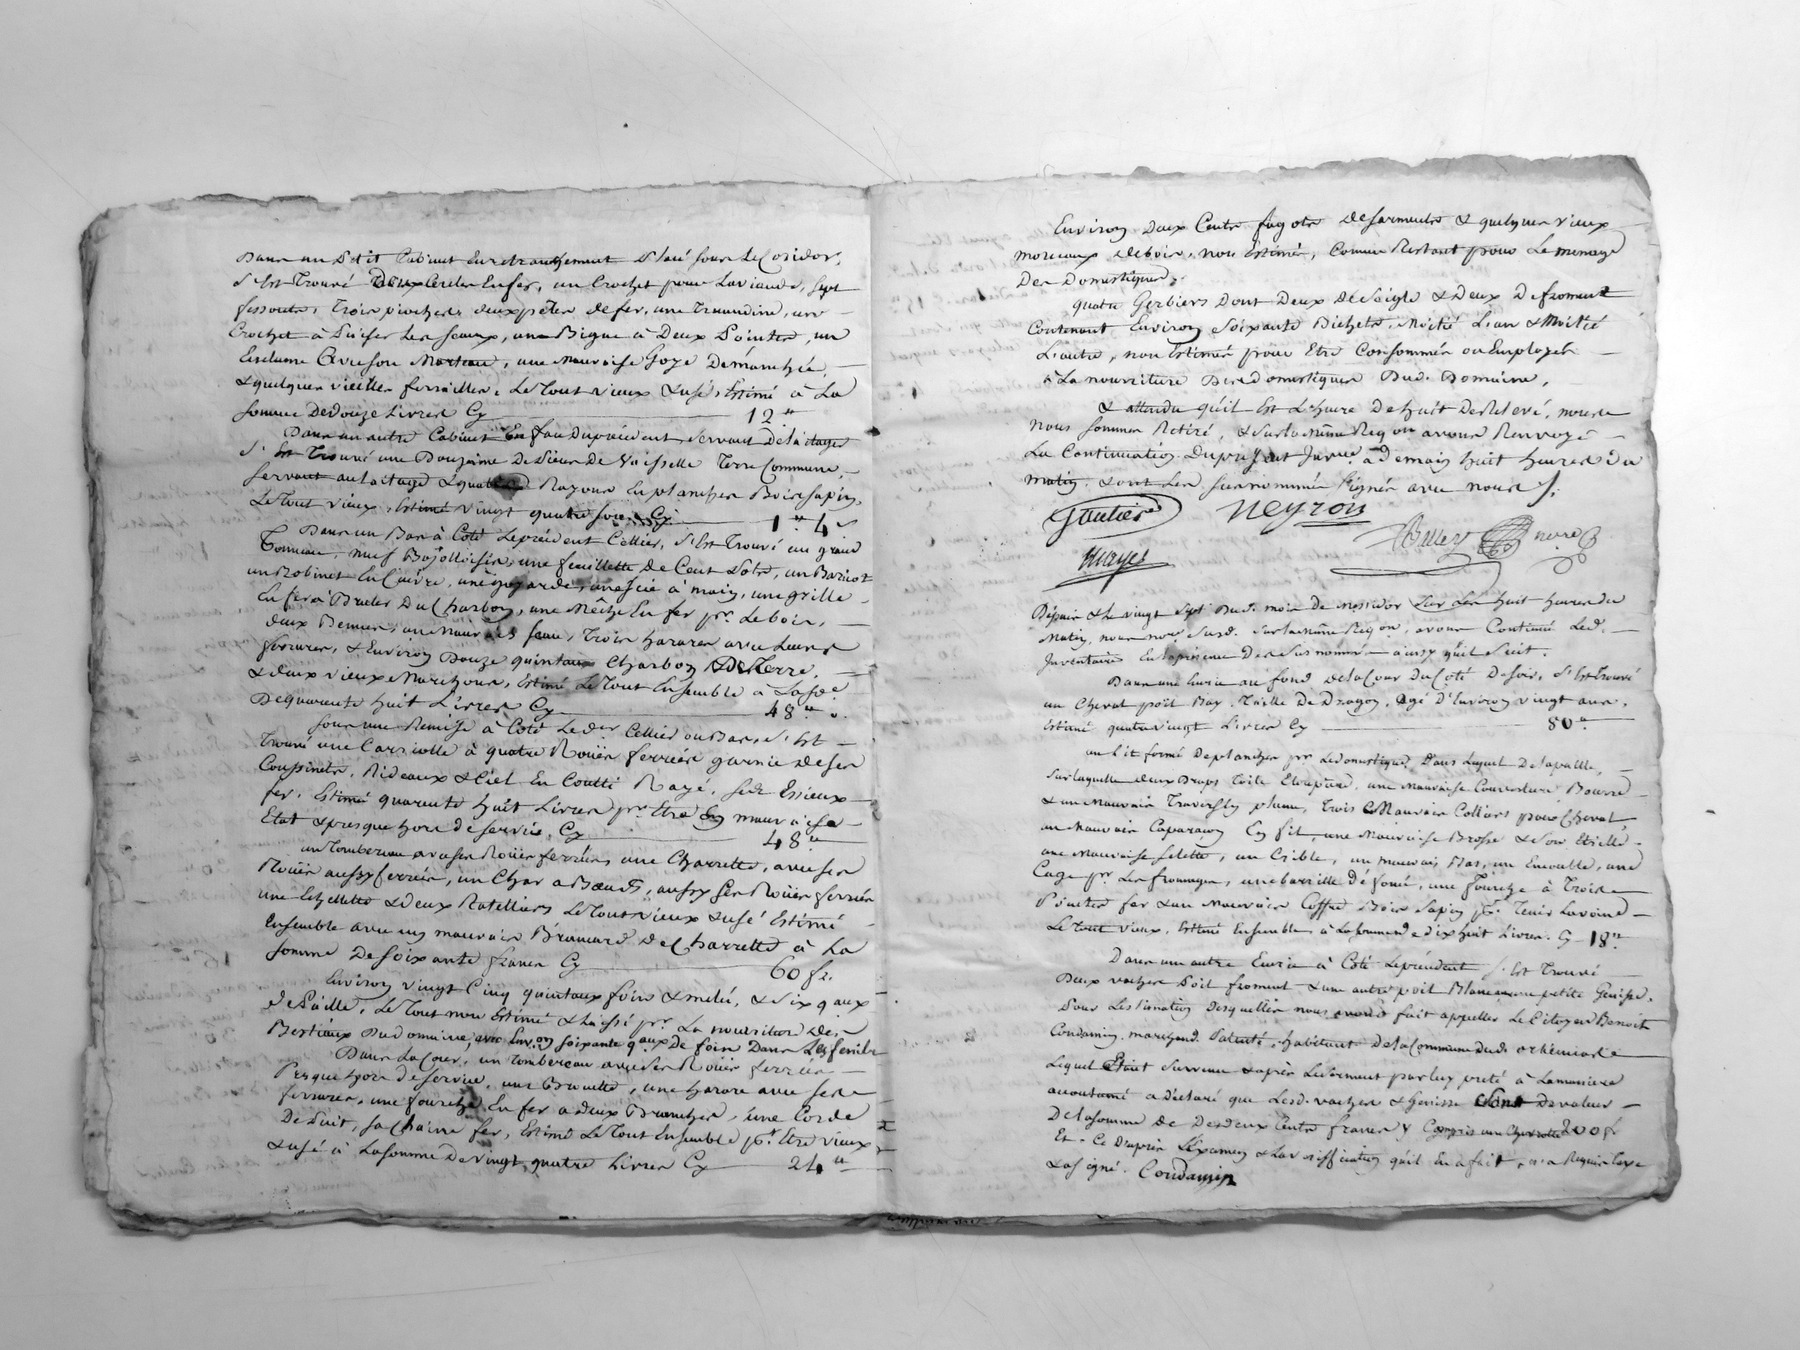 Dans un Petit Cabinet En retranchement Placé sous Le Coridor,
S'est Trouvé Deux Cercles En fer, un Crochet pour La viande, Sept
fessoirs, Trois pioches, deux pelles de fer, une Truandine, un
Crochet à Puiser Les seaux, une Bigue à Deux Pointes, un
Enclume Avec son Marteau, une Mauvaise Goye Démanchée,
& quelques vieilles ferrailles, Le Tout vieux & usé, Estimé à La
Somme De douze Livres Cy 12 "
Dans un autre Cabinet En face Du précédent Servant De laitage
S'Est Trouvé une Douzaine De Pièces De Vaisselle Terre Commune,
Servant au laitage & quatre Rayons En planches Bois sapin,
Le Tout vieux, Estimé vingt quatre sous Cy 1 " 4 s
Dans un Bas à Côté Le précédent Cellier, S'Est Trouvé un grand
Tonneau, neuf Bojolloises, une feuillette De Cent Pots, un Baricot
un Robinet En Cuivre, une scie à main, une grille
En fer à Bruler Du Charbon, une Mèche En fer pr. Le bois,
deux Bennes, un Mauvais seau, Trois hararres avec Leurs
ferrures, & Environ Douze quintaux Charbon De Terre,
& deux vieux Marchons, Estimé Le Tout Ensemble à La Soe
De quarante huit Livres Cy 48 "
Sous une Remise à Coté Led. Cellier ou Bas, S'Est
Trouvé une Carriolle à quatre Roües ferrées garnie De ses
Coussinets, Rideaux & Ciel En Coutti Rayé, ses Essieux
fer, Estimé quarante huit Livres pr. Etre En mauvaise
Etat & presque hors de service, Cy 48 "
un Tombereau avec ses Roües ferrées, une Charrette, avec ses
Roües aussy ferrées, un Char à Bœufs, aussy ses Roües ferrées
une Echellette & deux Ratelliers Le Tout vieux & usé Estimé
Ensemble avec un mauvais Brancard De Charrette à La
somme De soixante francs Cy 60 fr.
Environ vingt Cinq quintaux foin & mêlé, & six qaux
de Paille, Le Tout non Estimé & Laissé pr. La nouriture Des
Bestiaux Dud. domaine, avec Env.on soixante qaux De foin Dans Les fenils
Dans La Cour, un Tombereau avec ses Roües ferrées
Presque hors De service, une Brouette, une harare avec ses
ferrures, une fourche En fer à deux Branches, une Corde
De Puit, sa Chaine fer, Estimé Le Tout Ensemble pr. Etre vieux
& usé à La Somme De vingt quatre Livres Cy 24 "
Environ Deux Cents fagots de Sarments & quelques vieux
morceaux de bois, non Estimés, Comme Restant pour Le menage
Des Domestiques.
quatre Gerbiers Dont Deux De Seigle & Deux De froment
Contenant Environ soixante Bichets, Moitié L'un & Moitié
L'autre, non Estimés pour Etre Consommés ou Employés
à La nourriture Des domestiques Dud. Domaine,
& attendu qu'il Est L'heure De huit De Relevé, nous
nous sommes Retiré, & Sur La même Reqon avons Renvoyé
La Continuation Du présent Inv.re à Demain huit heures Du
matin. & ont Les surnommés Signés avec nous
Gautier Neyron
Mayet
Depuis & Le vingt Sept Dud. mois De Messidor Sur Les huit heures du
Matin, nous nore Susd. Sur La même Reqon, avons Continué Led.
Inventaire En La présence Des sus nommés ainsy qu'il suit.
Dans une Ecurie au fond de la Cour Du Coté De soir, S'Est Trouvé
un Cheval poil Bay, Taille De Dragon, agé D'Environ vingt ans,
Estimé quatre vingt Livres Cy 80 "
un Lit formé De planches pr. Le domestique, Dans Lequel De la paille,
Sur laquelle deux Draps Toile Etoupière, une Mauvaise Couverture, Bourre
& un Mauvais Traversin plume, Trois Mauvais Colliers pour Cheval,
un Mauvais Caparaçon En fil, une Mauvaise Brosse & Son Etrille
une Mauvaise Selette, un Crible, un mauvais Bas, un Encoulle, une
Cage pr. Les fromages, une barrille Défoncé, une fourche à Trois
Pointes fer & un Mauvais Coffre Bois Sapin pr. Tenir L'avoine
Le Tout vieux, Estimé Ensemble à La somme de dix huit Livres. Cy 18 "
Dans un autre Ecurie à Coté Le précédent S'Est Trouvé
Deux vaches Poil froment & une autre poil Blanc une petite Genisse.
Pour L'estimation Desquelles nous avons fait appeller Le Citoyen Benoit
Condamin, marchand Patenté, habitant De la Commune Dud.
Lequel Etant Survenu & après Le Serment par luy preté à La maniere
accoutumé a déclaré que Lesd. vaches & Genisse Sont De valeur
De la somme de De deux Cents francs y Compris une Chevrotte 200 fr
Et. Ce D'après L'Examen & La vérification qu'il En a fait, n'a Requis Taxe
& a signé. Condamin